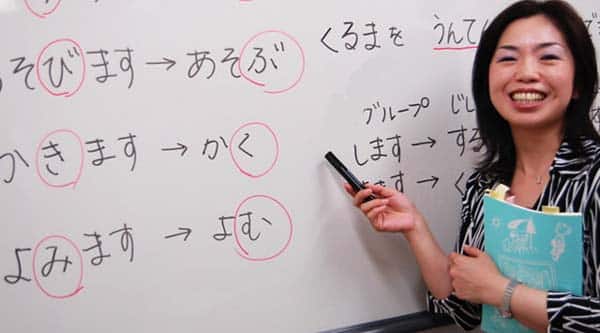 あそびます → あそぶ
かきます → かく
よみます → よむ
くるまを うんて
グループ じし
します → する
ます → く